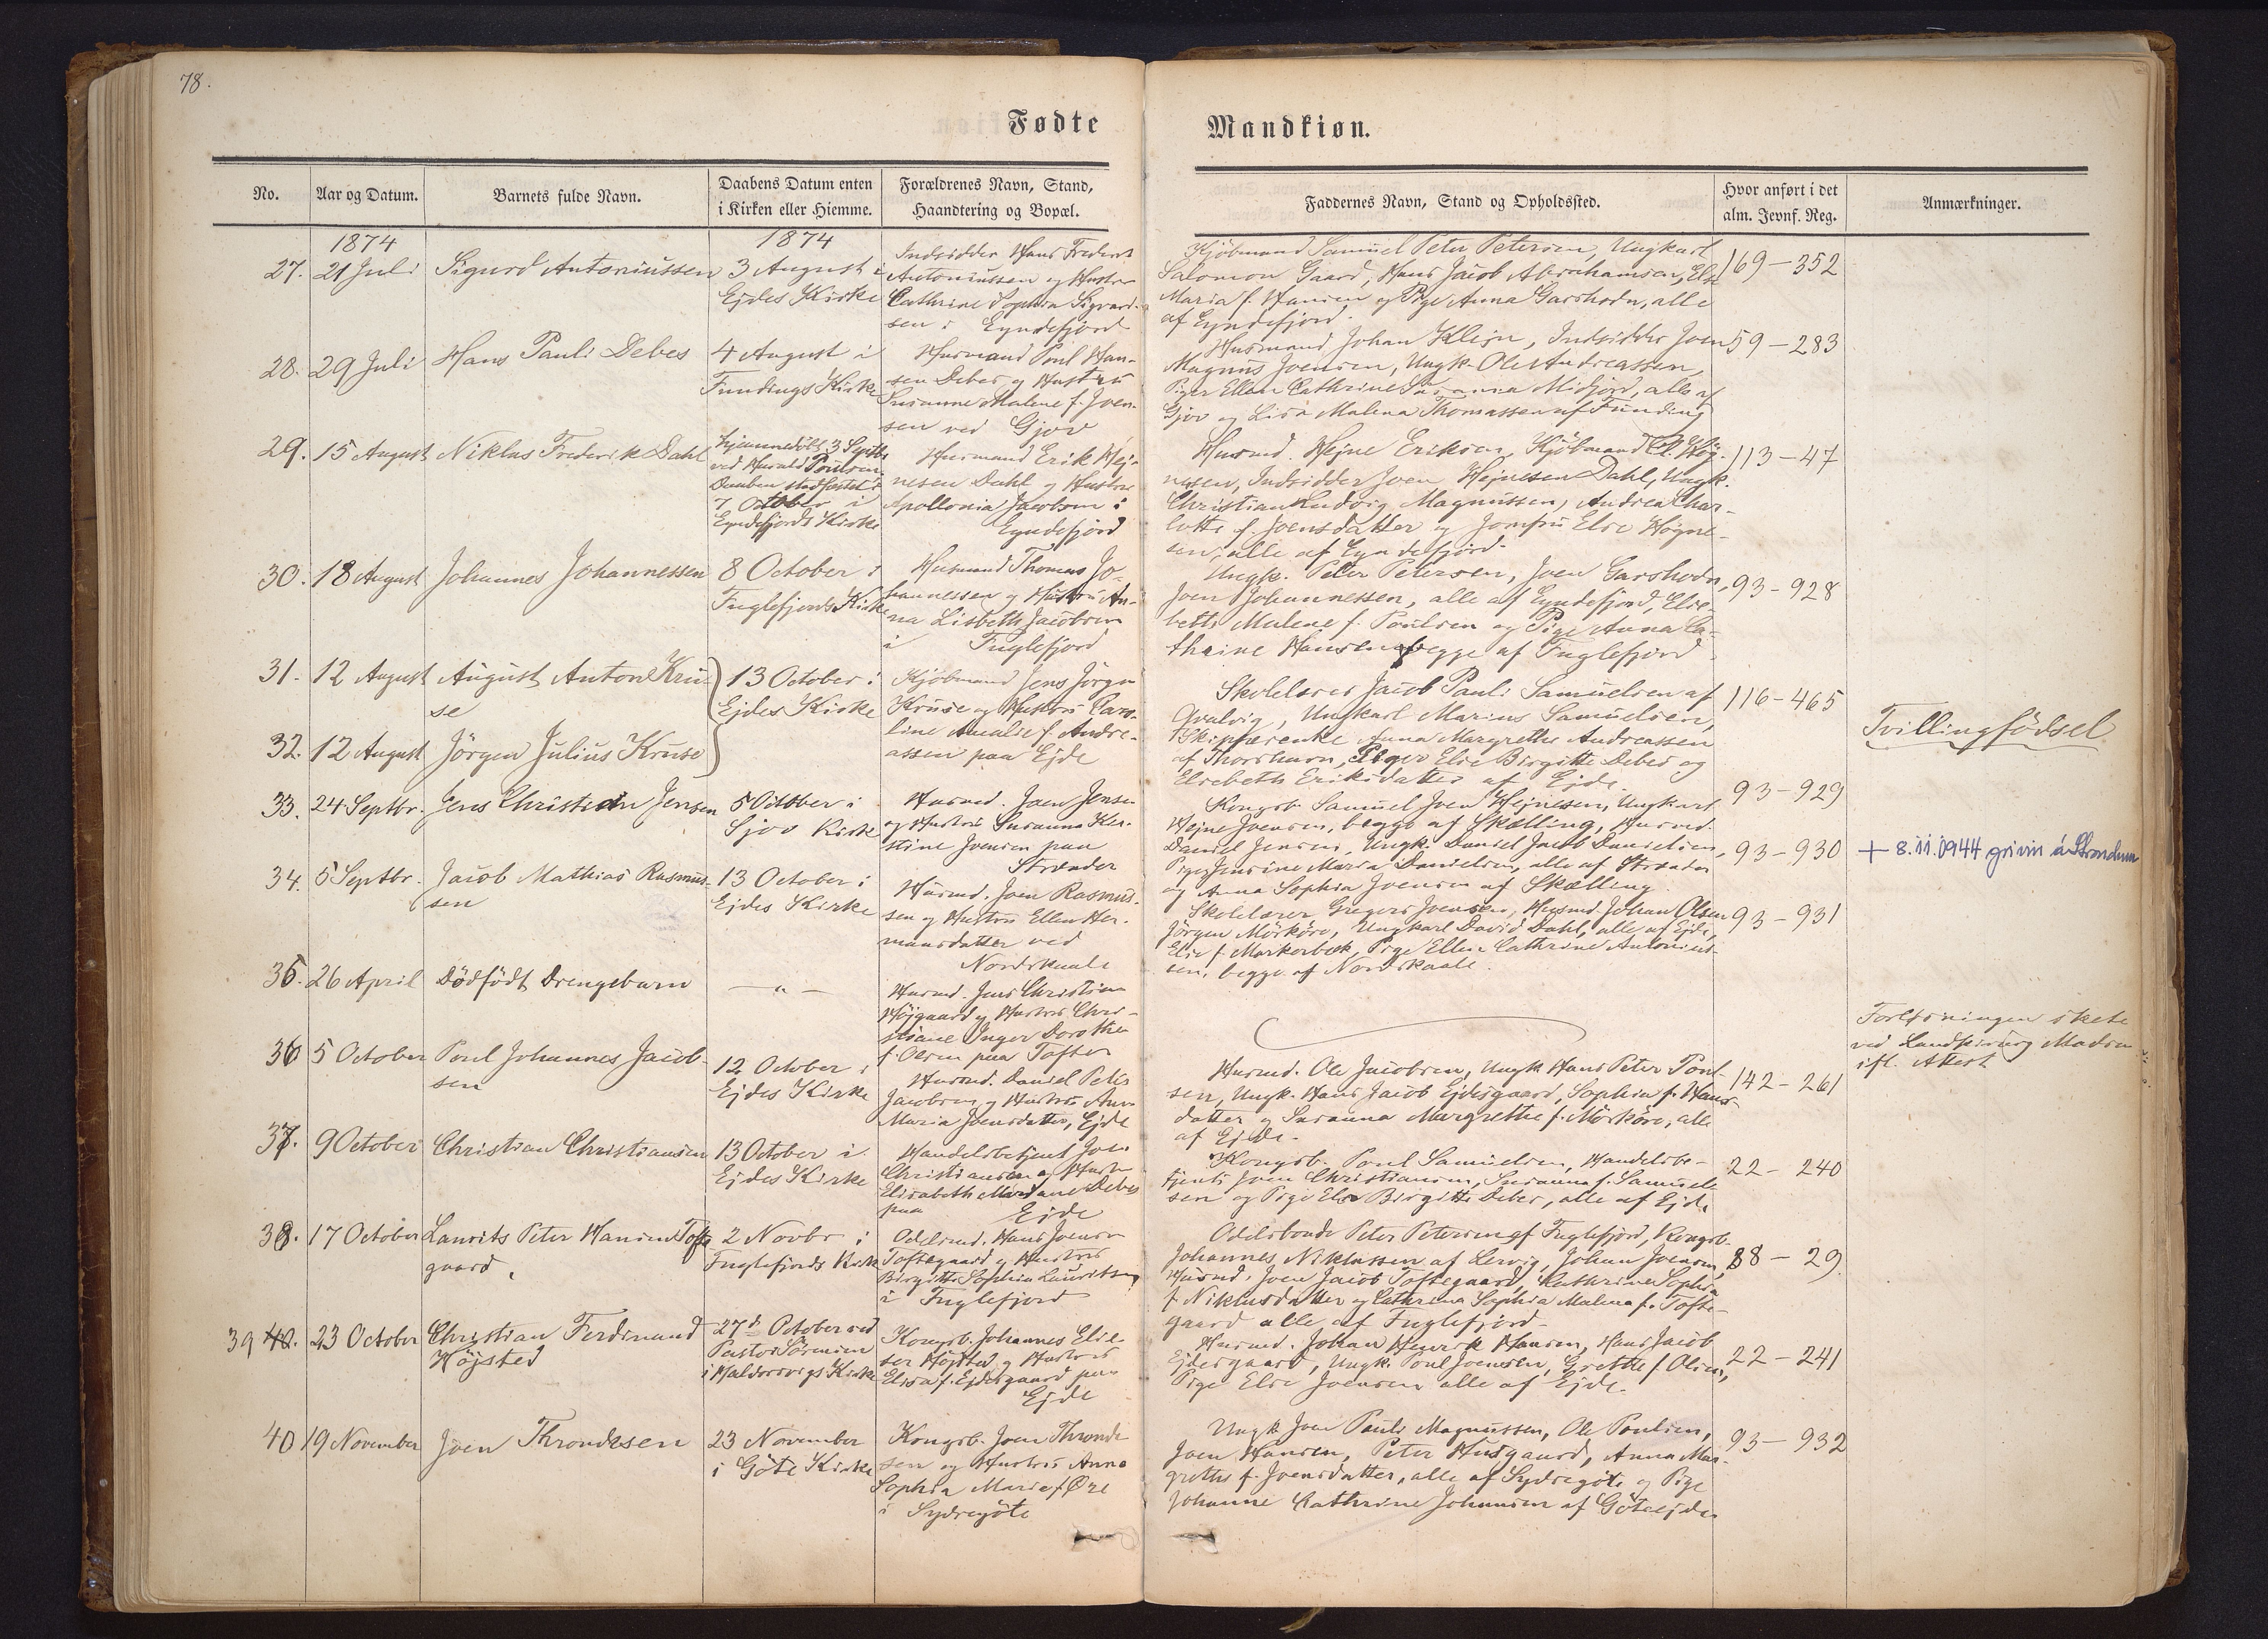 78.
Fødte
Mandkiøn.
No.
Aar og Datum.
Barnets fulde Navn.
Daabens Datum enten
i Kirken eller Hiemme.
Forældrenes Navn, Stand,
Haandtering og Bopæl.
Faddernes Navn, Stand og Opholdssted.
Hvor anført i det
alm. Jevnf. Reg.
Anmærkninger.
1874
1874
27. 21 Juli
Sigurd Antoniussen
3 August i
Ejdes Kirke
Indsidder Hans Frederik
Antoniussen og Hustru
Cathrine Sophia Sigvard-
sen i Eyndefjord
Kjöbmand Samuel Peter Petersen, Ungkarl
Salomon Gaard, Hans Jacob Abrahamsen, Else
Maria f. Hansen og Pige Anna Garshodn, alle
af Eyndefjord.
169 - 352
28. 29 Juli
Hans Pauli Debes
4 August i
Fundings Kirke
Husmand Poul Han-
sen Debes og Hustru
Susanne Malene f. Joen-
sen ved Gjov
Husmand Johan Klejn, Indsidder Joen
Magnus Joensen, Ungk. Ole Andreassen,
Piger Ellen Cathrine Susanna Midjord, alle af
Gjov og Lisa Malena Thomassen af Funding
59 - 283
29. 15 August
Niklas Frederik Dahl
hjemmedöbt 3 Septbr
ved Harald Poulsen
Daaben stadfæstet
7 October i
Eyndefjords Kirke
Husmand Erik Hej-
nesen Dahl og Hustru
Apollonia Jacobsen i
Eyndefjord
Husmd. Hejne Eriksen, Kjöbmand Cl. Hög-
nesen, Indsidder Joen Hejnesen Dahl, Ungk.
Christian Ludvig Magnussen, Andrea Char-
lotte f. Joensdatter og Jomfru Else Högne-
sen, alle af Eyndefjord.
113 - 47
30. 18 August
Johannes Johannessen
8 October i
Fuglefjords Kirke
Husmand Thomas Jo-
hannessen og Hustru An-
na Lisbeth Jacobsen
i Fuglefjord
Ungk. Peter Petersen, Joen Garshodn,
Joen Johannessen, alle af Eyndefjord, Else-
beth Malene f. Poulsen og Pige Anna Ca-
thrine Hansen begge af Fuglefjord.
93 - 928
31. 12 August
August Anton Kru-
se
13 October i
Ejdes Kirke
Kjöbmand Jens Jörgen
Kruse og Hustru Caro-
line Amalie f. Andre-
assen paa Ejde
Skolelærer Jacob Pauli Samuelsen af
Qvalvig, Ungkarl Marius Samuelsen,
Skipperenke Anna Margrethe Andreassen
af Thorshavn, Piger Else Birgitte Debes og
Elsebeth Eriksdatter af Ejde.
116 - 465
32. 12 August
Jörgen Julius Kruse
Tvillingfödsel
33. 24 Septbr.
Jens Christian Jensen
5 October i
Sjov Kirke
Husmd. Joen Jensen
og Hustru Susanna Kir-
stine Joensen paa
Strænder
Kongsb. Samuel Joen Hejnesen, Ungkarl
Hejne Joensen, begge af Skælling, Husmd.
Daniel Jensen, Ungk. Daniel Jacob Danielsen,
Pige Jensine Maria Danielsen, alle af Strænder
og Anna Sophia Joensen af Skælling.
93 - 929
93 - 930
+ 8.11.1944 grivin á Strondum
34. 5 Septbr.
Jacob Mathias Rasmus-
sen
13 October i
Ejdes Kirke
Husmd. Joen Rasmus-
sen og Hustru Ellen Her-
mansdatter ved
Nordskaale
Skolelærer Gregers Joensen, Husmd. Johan Olsen
Jörgen Mörköre, Ungkarl David Dahl, alle af Ejde,
Else f. Markerbæk, Pige Ellen Cathrine Antonius-
sen, begge af Nordskaale.
93 - 931
35. 26 April
Dödfödt Drengebarn
— " —
Husmd. Jens Christian
Höjgaard og Hustru Chri-
stiane Inger Dorothea
f. Olsen paa Tofter
Forløsningen skete
ved Landkirurg Madsen
ifl. Attest
36 5 October
Poul Johannes Jacob-
sen
12 October i
Ejdes Kirke
Husmd. Daniel Peter
Jacobsen og Hustru Anna
Maria Joensdatter, Ejde
Husmd. Ole Jacobsen, Ungk Hans Peter Poul-
sen, Ungk. Hans Jacob Ejdesgaard, Sophia f. Hans-
datter og Susanna Margrethe f. Mörköre, alle
af Ejde.
142 - 261
37. 9 October
Christian Christiansen
13 October i
Ejdes Kirke
Handelsbetjent Joen
Christiansen og Hustru
Elisabeth Mariane Debes
paa Ejde
Kongsb. Poul Samuelsen, Handelsbe-
tjent Joen Christiansen, Susanna f. Samuel-
sen og Pige Else Birgitte Debes, alle af Ejde
22 - 240
38. 17 October
Laurits Peter Hansen Tofte
gaard.
2 Novbr i
Fuglefjords Kirke
Odelsmd. Hans Joensen
Toftegaard og Hustru
Birgitte Sophia Lauritsen
i Fuglefjord
Odelsbonde Peter Petersen af Fuglefjord, Kongsb.
Johannes Niklassen af Lervig, Johan Joensen,
Husmd. Joen Jacob Toftegaard, Cathrine Sophia
f. Niklasdatter og Cathrina Sophia Malena f. Tofte-
gaard alle af Fuglefjord.
88 - 29
39 40. 23 October
Christian Ferdinand
Höjsted
27d October ved
Pastor Sörensen
i Haldorsvigs Kirke
Kongsb. Johannes Elia-
sen Höjsted og Hustru
Elisa f. Ejdesgaard paa
Ejde
Husmd. Johan Henrik Hansen, Hans Jacob
Ejdesgaard, Ungk. Poul Joensen, Grethe f. Olsen,
Pige Else Joensen alle af Ejde.
22 - 241
40 19 November
Joen Throndesen
23 November
i Göte Kirke
Kongsb. Joen Thronde
sen og Hustru Anna
Sophia Marie f Øre
i Sydregöte
Ungk Joen Pauli Magnussen, Ole Poulsen,
Joen Hansen, Peter Husgaard, Anna Mar-
grethe f. Joensdatter, alle af Sydregöte og Pige
Johanne Cathrine Johansen af Göteejde
93 - 932